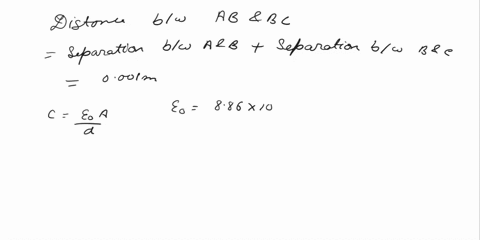 Distance b/w AB & BC
= Separation b/w A&B + Separation b/w B&C
= 0.001m
C = ε₀ A / d ε₀ = 8.86 × 10